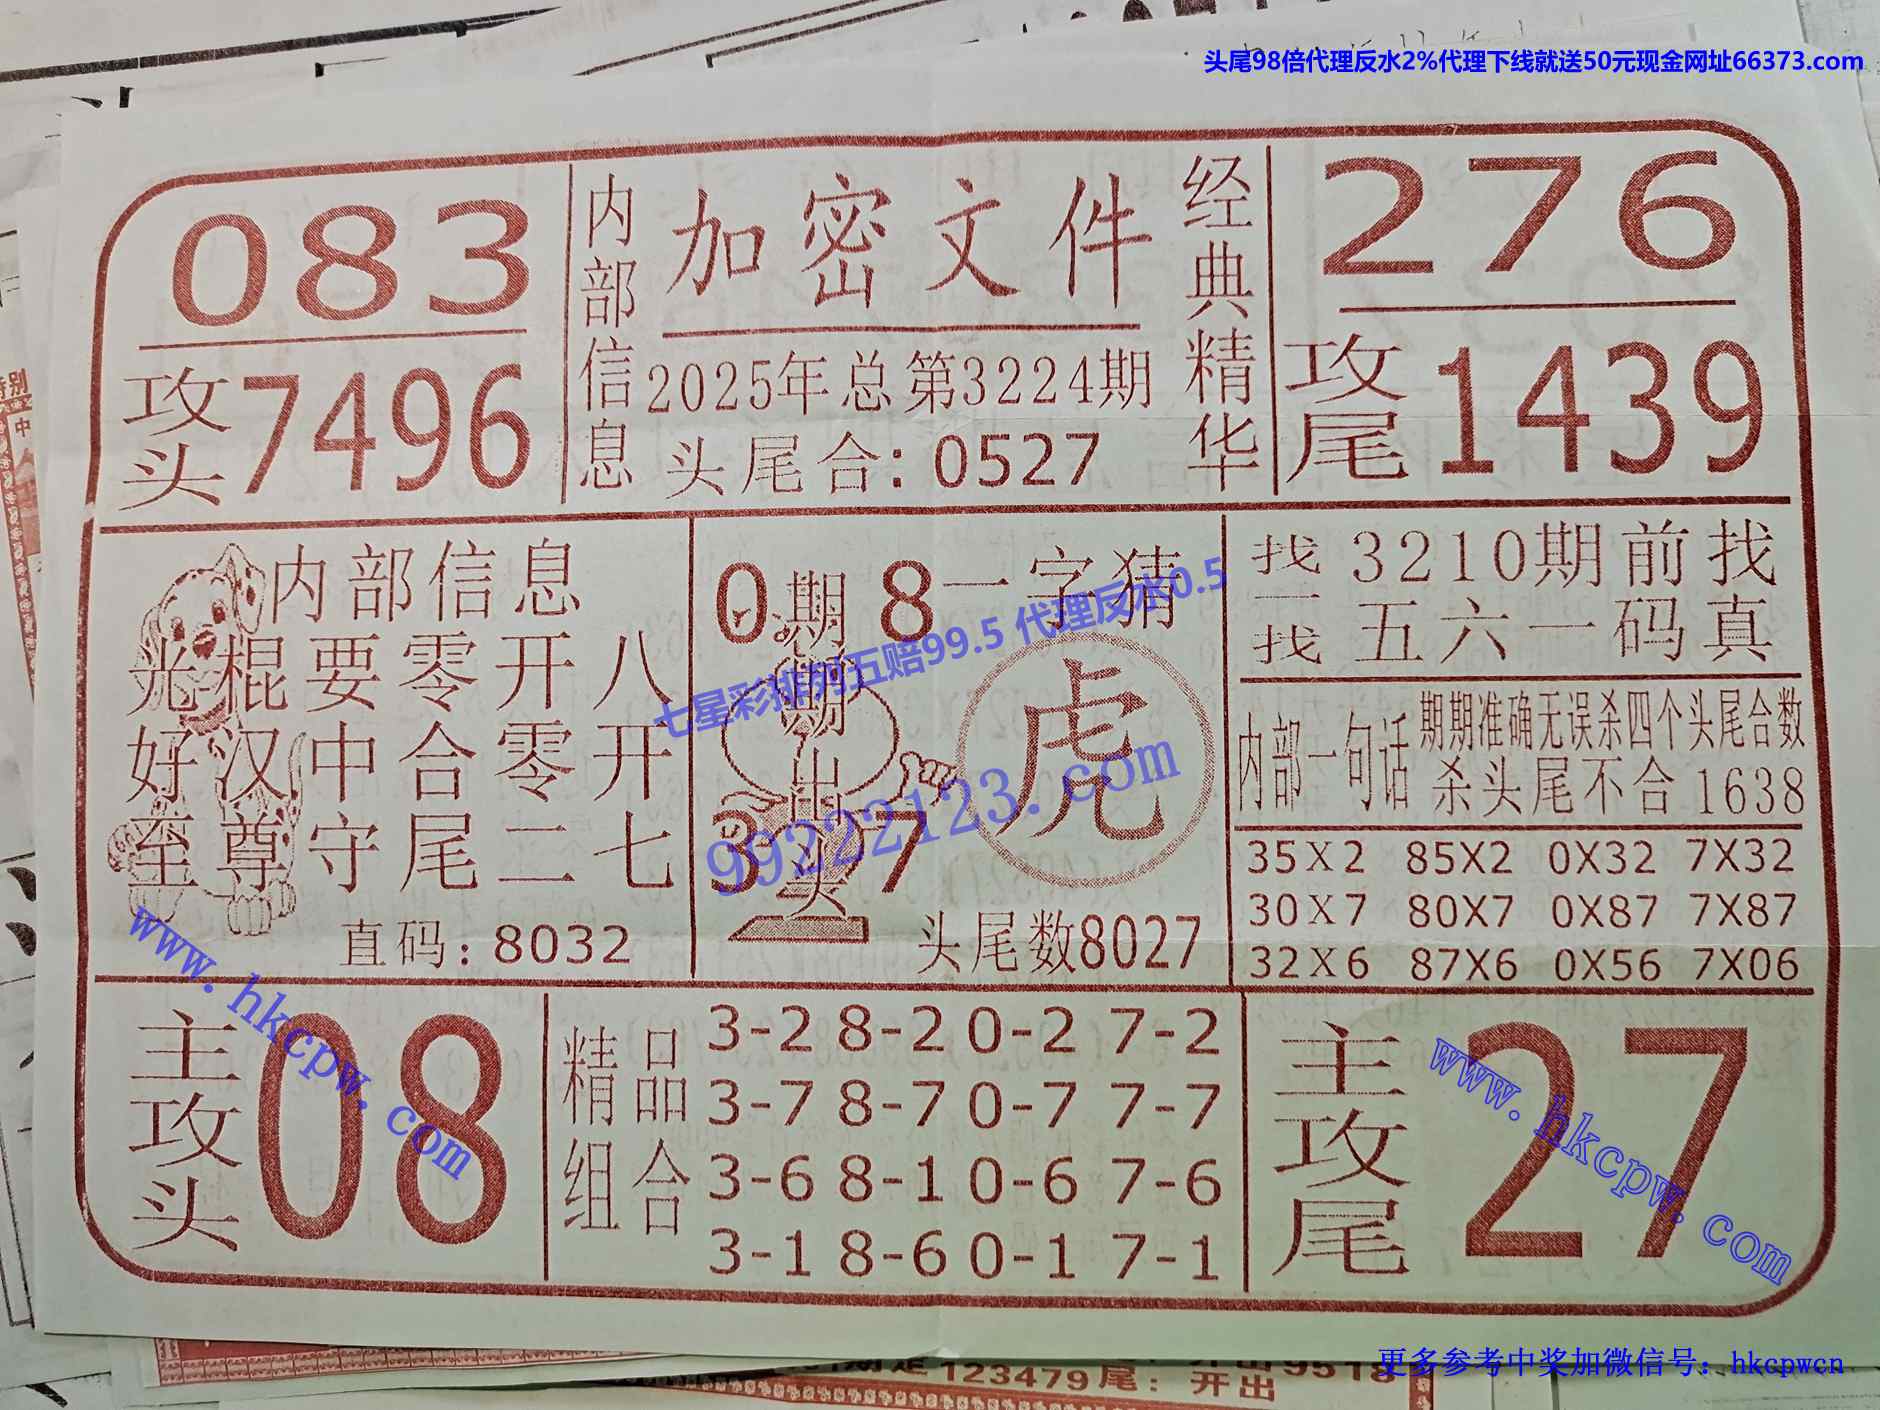 头尾98倍代理反水2%代理下线就送50元现金网址66373.com
083
攻头7496
内部信息
加密文件
2025年总第3224期
头尾合:0527
经典精华
276
攻尾1439
内部信息
光棍要零开八
好汉中合零开
至尊守尾二七
直码:8032
0 8
期期出头
3 7
一字猜
虎
头尾数8027
找一找
3210期前找
五六一码真
内部一句话
期期准确无误杀四个头尾合数
杀头尾不合1638
35X2 85X2 0X32 7X32
30X7 80X7 0X87 7X87
32X6 87X6 0X56 7X06
主攻头
08
精品组合
3-2 8-2 0-2 7-2
3-7 8-7 0-7 7-7
3-6 8-1 0-6 7-6
3-1 8-6 0-1 7-1
主攻尾
27
七星彩排列五赔99.5 代理反水0.5
99222123.com
www.hkcpw.com
www.hkcpw.com
123479尾:开出9518
开出
更多参考中奖加微信号:hkcpwcn